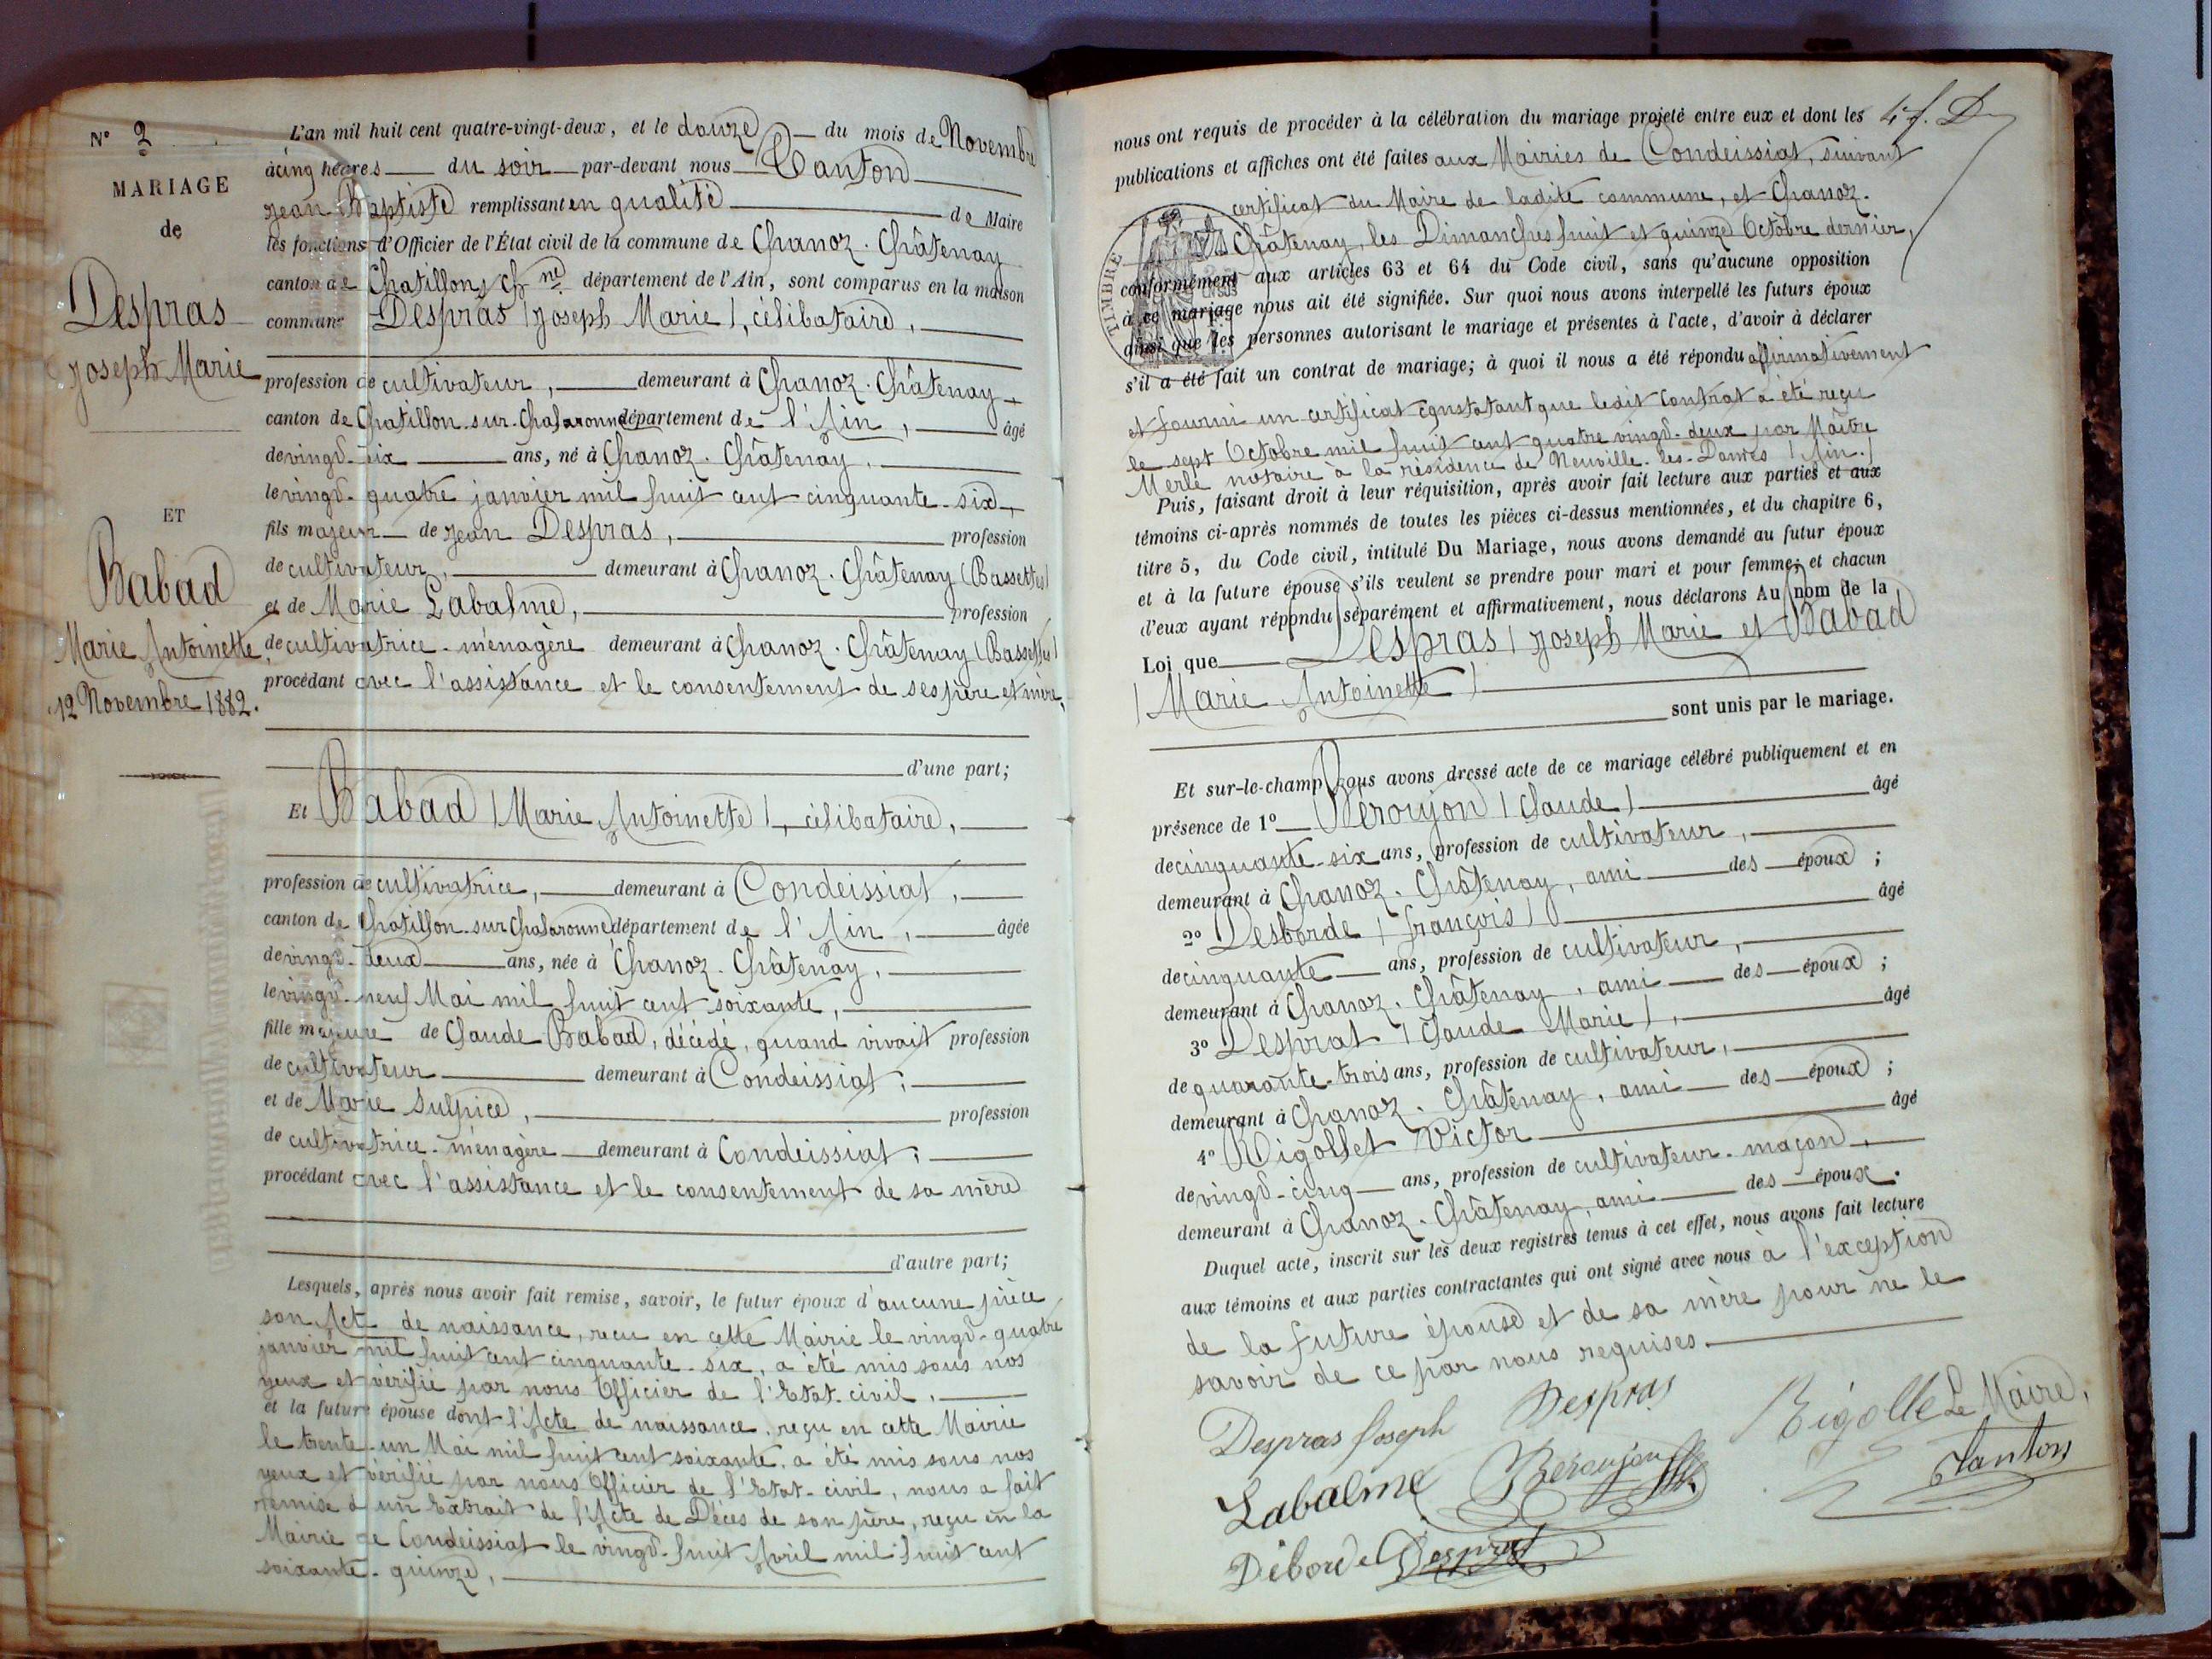 N° 2
MARIAGE
de
Despras
Joseph Marie
ET
Babad
Marie Antoinette
12 Novembre 1882.
L'an mil huit cent quatre-vingt-deux, et le douze du mois de Novembre
à cinq heures du soir par-devant nous Tanton
Jean Baptiste remplissant en qualité de Maire
les fonctions d'Officier de l'État civil de la commune de Chanoz-Châtenay
canton de Chatillon s/ Ch ne département de l'Ain, sont comparus en la maison
commune Despras (Joseph Marie), célibataire,
profession de cultivateur, demeurant à Chanoz-Châtenay
canton de Chatillon-sur-Chalaronne département de l'Ain, âgé
de vingt-six ans, né à Chanoz-Châtenay,
le vingt-quatre janvier mil huit cent cinquante-six,
fils majeur de Jean Despras, profession
de cultivateur, demeurant à Chanoz-Châtenay (Bassettes)
et de Marie Labalme, profession
de cultivatrice-ménagère demeurant à Chanoz-Châtenay (Bassettes)
procédant avec l'assistance et le consentement de ses père et mère,
d'une part;
Et Babad (Marie Antoinette), célibataire,
profession de cultivatrice, demeurant à Condeissiat,
canton de Chatillon-sur-Chalaronne département de l'Ain, âgée
de vingt-deux ans, née à Chanoz-Châtenay,
le vingt-neuf Mai mil huit cent soixante,
fille majeure de Claude Babad, décédé, quand vivait profession
de cultivateur demeurant à Condeissiat;
et de Marie Sulpice, profession
de cultivatrice-ménagère demeurant à Condeissiat;
procédant avec l'assistance et le consentement de sa mère
d'autre part;
Lesquels, après nous avoir fait remise, savoir, le futur époux d'aucune pièce,
son Acte de naissance, reçu en cette Mairie le vingt-quatre
janvier mil huit cent cinquante-six, a été mis sous nos
yeux et vérifié par nous Officier de l'Etat-civil,
et la future épouse dont l'Acte de naissance, reçu en cette Mairie
le trente-un Mai mil huit cent soixante, a été mis sous nos
yeux et vérifié par nous Officier de l'Etat-civil, nous a fait
remise d'un Extrait de l'Acte de Décès de son père, reçu en la
Mairie de Condeissiat le vingt-huit Avril mil huit cent
soixante-quinze,
nous ont requis de procéder à la célébration du mariage projeté entre eux et dont les
publications et affiches ont été faites aux Mairies de Condeissiat, suivant
certificat du Maire de ladite commune, et Chanoz-
Châtenay, les Dimanches huit et quinze Octobre dernier,
TIMBRE
conformément aux articles 63 et 64 du Code civil, sans qu'aucune opposition
à ce mariage nous ait été signifiée. Sur quoi nous avons interpellé les futurs époux
ainsi que les personnes autorisant le mariage et présentes à l'acte, d'avoir à déclarer
s'il a été fait un contrat de mariage; à quoi il nous a été répondu affirmativement
et fourni un certificat constatant que ledit contrat a été reçu
le sept Octobre mil huit cent quatre vingt-deux par Maître
Merle notaire à la résidence de Neuville-les-Dames (Ain.)
Puis, faisant droit à leur réquisition, après avoir fait lecture aux parties et aux
témoins ci-après nommés de toutes les pièces ci-dessus mentionnées, et du chapitre 6,
titre 5, du Code civil, intitulé Du Mariage, nous avons demandé au futur époux
et à la future épouse s'ils veulent se prendre pour mari et pour femme; et chacun
d'eux ayant répondu séparément et affirmativement, nous déclarons Au nom de la
Loi que Despras (Joseph Marie et Babad
(Marie Antoinette)
sont unis par le mariage.
Et sur-le-champ nous avons dressé acte de ce mariage célébré publiquement et en
présence de 1° Béroujon (Claude) âgé
de cinquante-six ans, profession de cultivateur,
demeurant à Chanoz-Châtenay, ami des époux;
2° Desborde (François) âgé
de cinquante ans, profession de cultivateur,
demeurant à Chanoz-Châtenay, ami des époux;
3° Desprat (Claude Marie), âgé
de quarante-trois ans, profession de cultivateur,
demeurant à Chanoz-Châtenay, ami des époux;
4° Rigollet Victor âgé
de vingt-cinq ans, profession de cultivateur-maçon,
demeurant à Chanoz-Châtenay, ami des époux.
Duquel acte, inscrit sur les deux registres tenus à cet effet, nous avons fait lecture
aux témoins et aux parties contractantes qui ont signé avec nous à l'exception
de la future épouse et de sa mère pour ne le
savoir de ce par nous requises.
Despras Joseph Despras Rigolle Le Maire,
Labalme Béroujon Tanton
Déborde Desprat